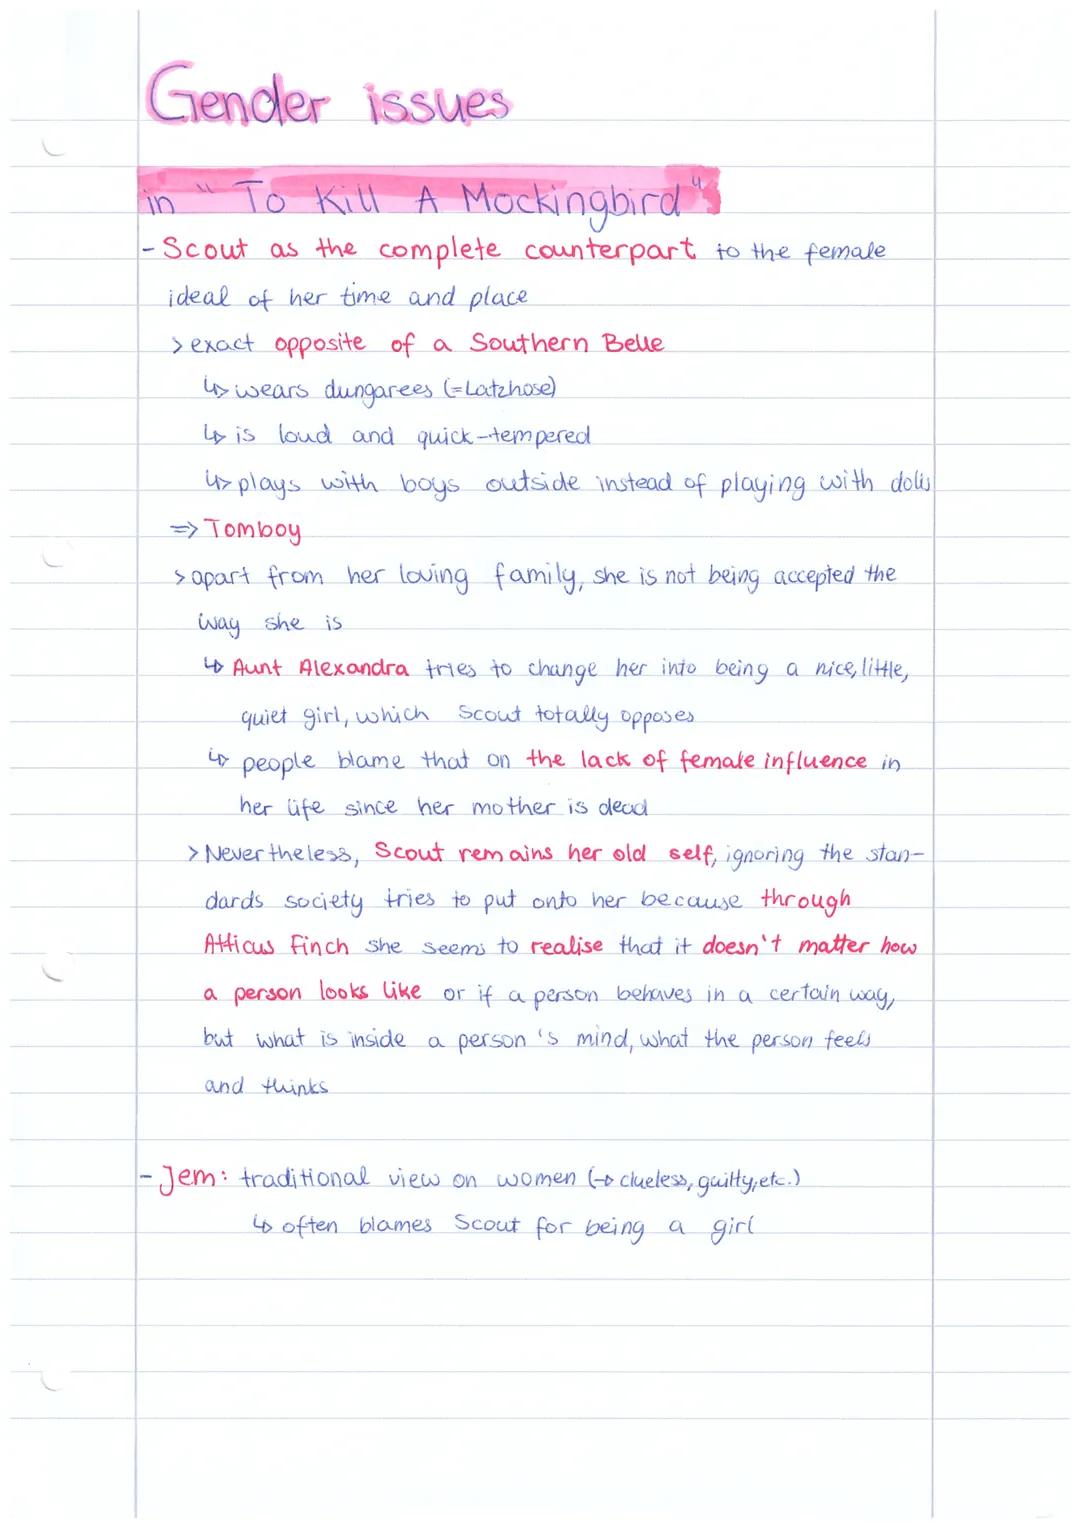 Gender issues
in "To Kill A Mockingbird"
- Scout as the complete counterpart to the female
ideal of her time and place
> exact opposite of a Southern Belle
↳ wears dungarees (=Latzhose)
↳ is loud and quick-tempered
↳ plays with boys outside instead of playing with dolls
=> Tomboy
> apart from her loving family, she is not being accepted the
way she is
↳ Aunt Alexandra tries to change her into being a nice, little,
quiet girl, which Scout totally opposes
↳ people blame that on the lack of female influence in
her life since her mother is dead
> Nevertheless, Scout remains her old self, ignoring the stan-
dards society tries to put onto her because through
Atticus Finch she seems to realise that it doesn't matter how
a person looks like or if a person behaves in a certain way,
but what is inside a person's mind, what the person feels
and thinks
- Jem: traditional view on women (→ clueless, guilty, etc.)
↳ often blames Scout for being a girl